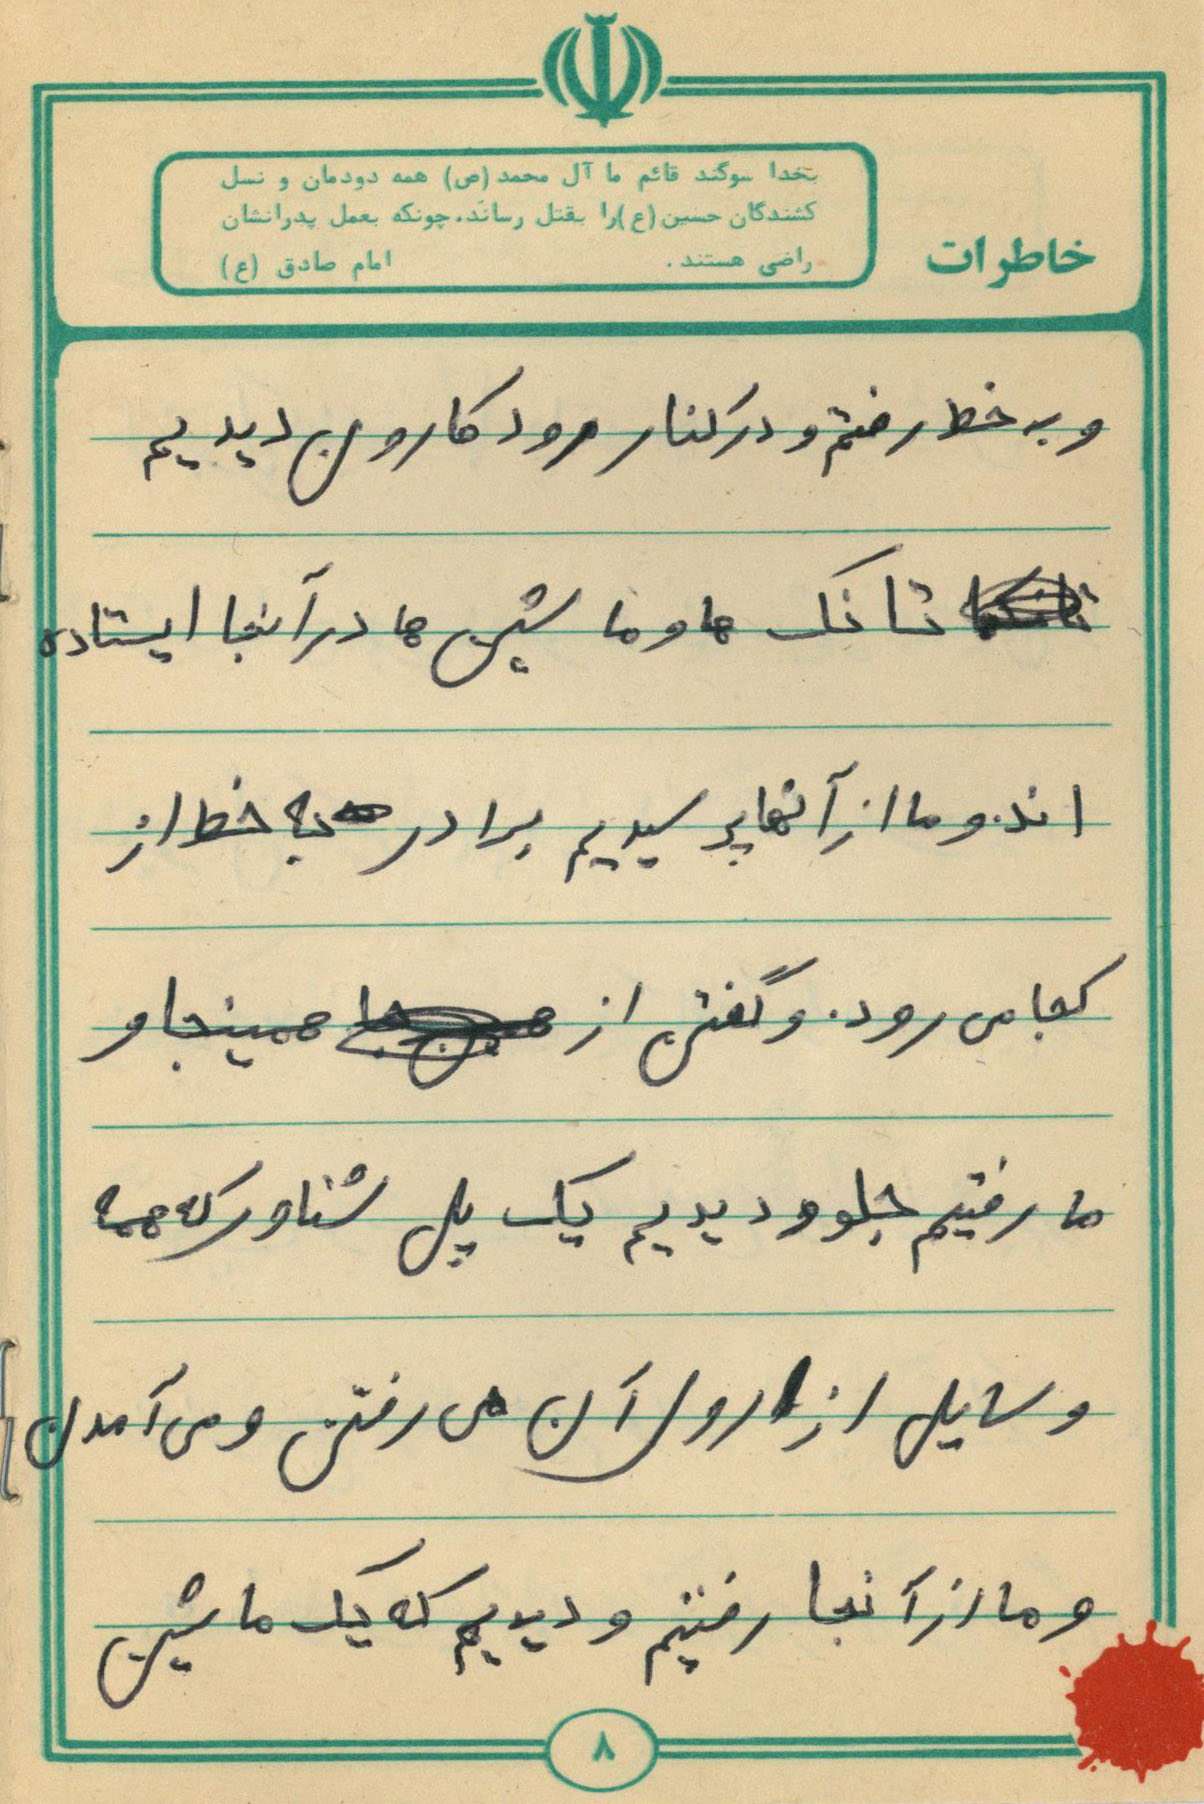 بخدا سوگند قائم ما آل محمد (ص) همه دودمان و نسل
کشندگان حسین (ع) را بقتل رساند، چونکه بعمل پدرانشان
راضی هستند. امام صادق (ع)
خاطرات
و به خط رفتم و در کنار رود کارون دیدیم
تانک ها و ماشین ها در آنجا ایستاده
اند. و ما از آنها پرسیدیم برادر به خط از
کجا می رود. و گفتن از همینجا و
ما رفتیم جلو و دیدیم یک پل شناور که همه
وسایل از روی آن می رفتن و می آمدن
و ما از آنجا رفتیم و دیدیم که یک ماشین
۸